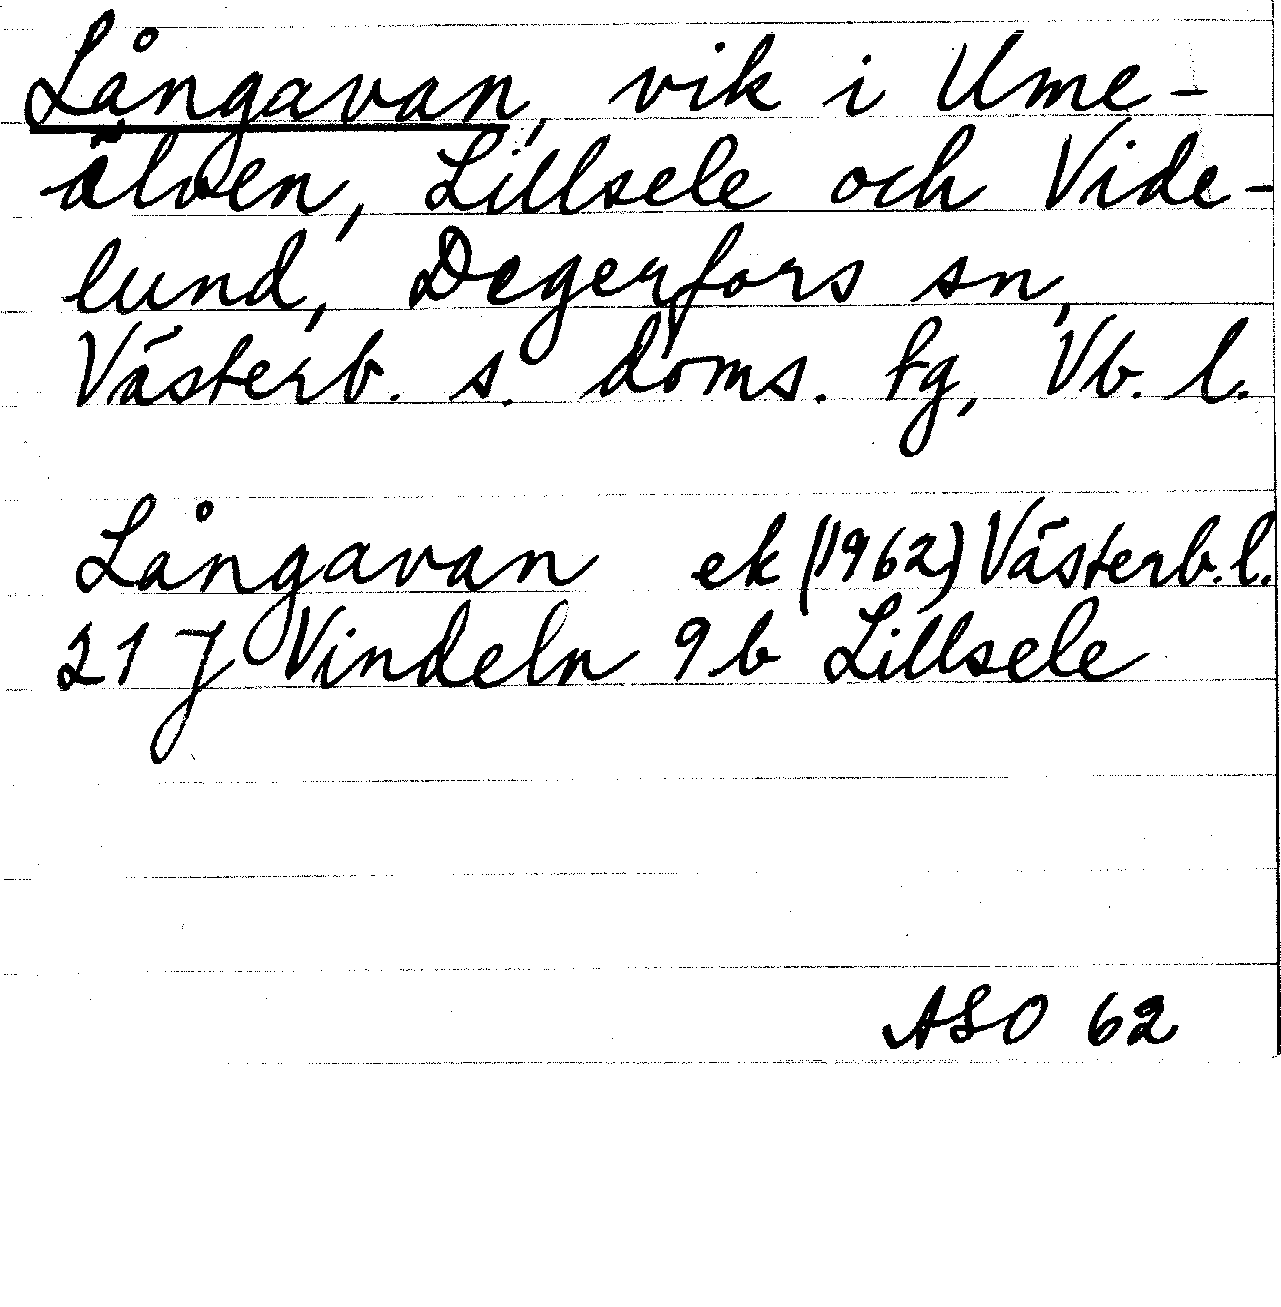 Långavan, vik i Ume-
älven, Lillsele och Vide-
lund, Degerfors sn,
Västerb. s. doms. tg, Vb. l.
Långavan ek (1962) Västerb. l.
21 J Vindeln 9 b Lillsele
ASO 62